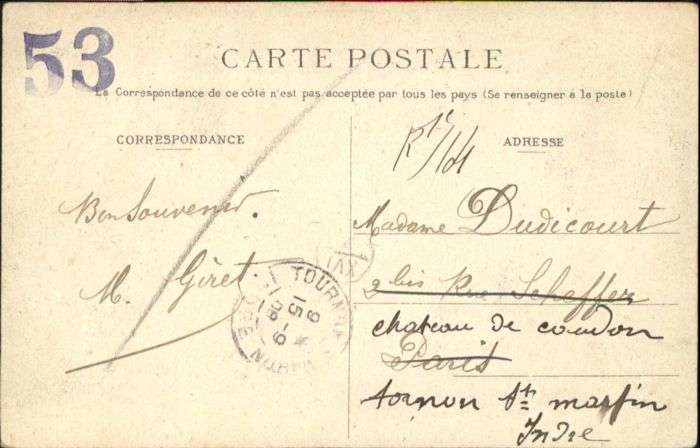 53
CARTE POSTALE
La Correspondance de ce côté n'est pas acceptée par tous les pays (Se renseigner à la poste)
CORRESPONDANCE
ADRESSE
Bon Souvenir.
M. Giret.
Madame Dudicourt
2 bis Rue Scheffer
chateau de coudon
Paris
tornon St martin
Indre
TOURN
MARTIN
15 -9
09